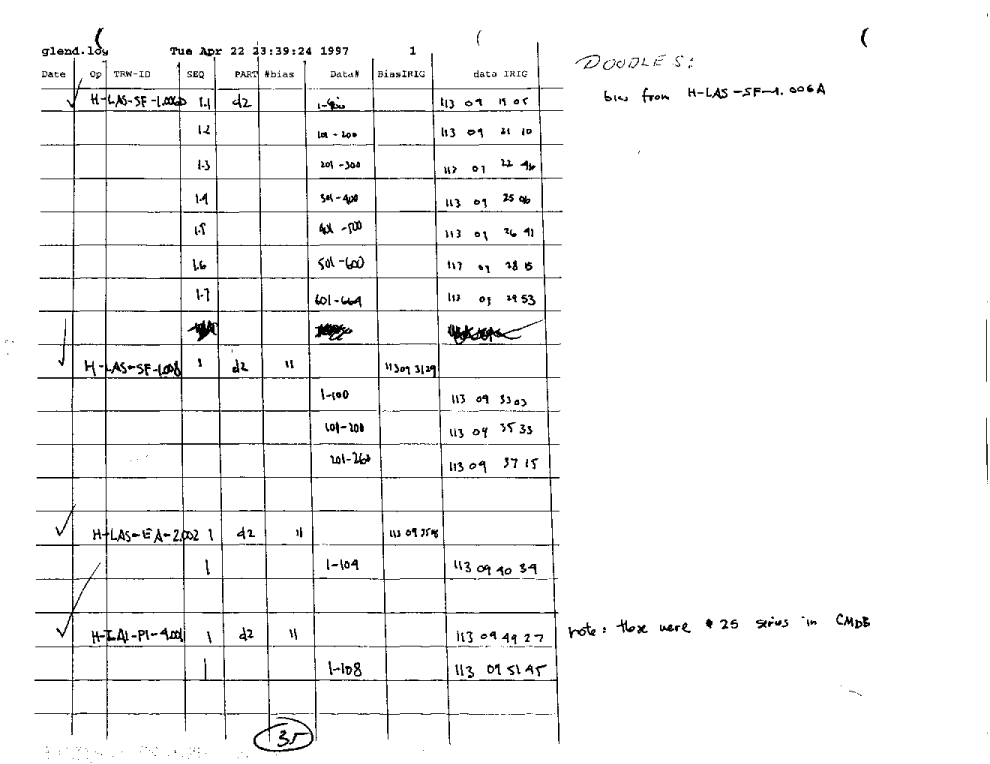 glend.log Tue Apr 22 23:39:24 1997 1
DOODLES:
Date Op TRW-ID SEQ PART #bias Data# BiasIRIG data IRIG
H-LAS-SF-1.006D 1.1 d2 113 09 19 05
bias from H-LAS-SF-1.006A
1.2 101-200 113 09 21 10
1.3 201-300 113 09 22 46
1.4 301-400 113 09 25 06
1.5 401-500 113 09 26 41
1.6 501-600 113 09 28 15
1.7 601-664 113 09 29 53
H-LAS-SF-1.008 1 d2 11 113 09 31 29
1-100 113 09 33 03
101-200 113 09 35 33
201-260 113 09 37 15
H-LAS-EA-2.002 1 d2 11 113 09
1 1-104 113 09 40 39
H-IAI-PI-4.001 1 d2 11 113 09 49 27
note: these were # 25 series in CMDB
1 1-108 113 09 51 45
35